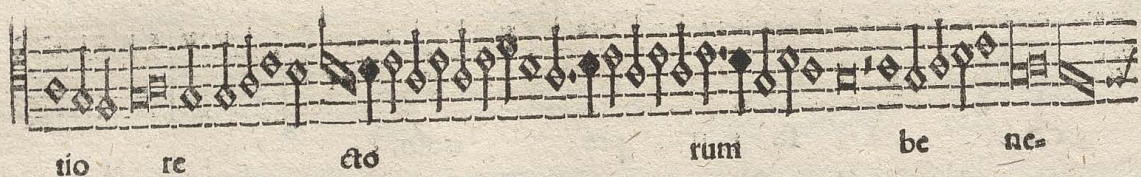 tio re cto rum be ne=